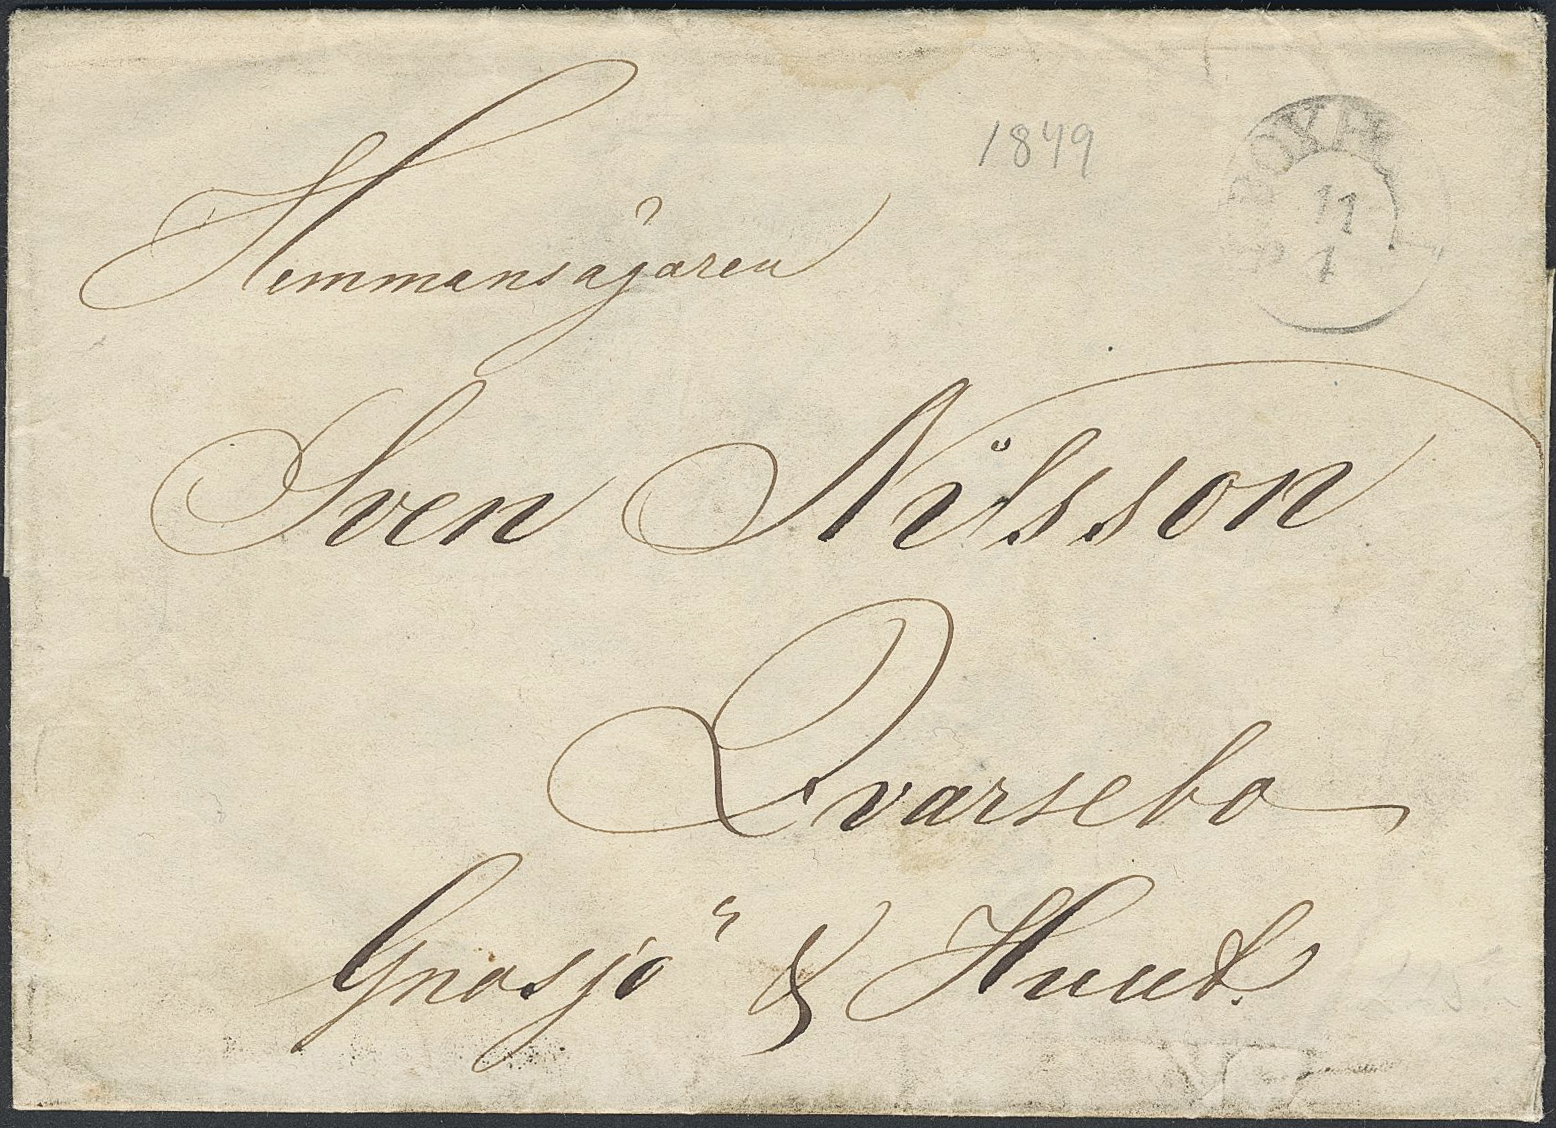 1849
11
1
Hemmansägaren
Sven Nilsson
Qvarsebo
Gnosjö & Hvet.